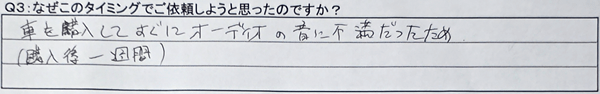 Q3:なぜこのタイミングでご依頼しようと思ったのですか？
車を購入してすぐにオーディオの音に不満だったため
(購入後一週間)